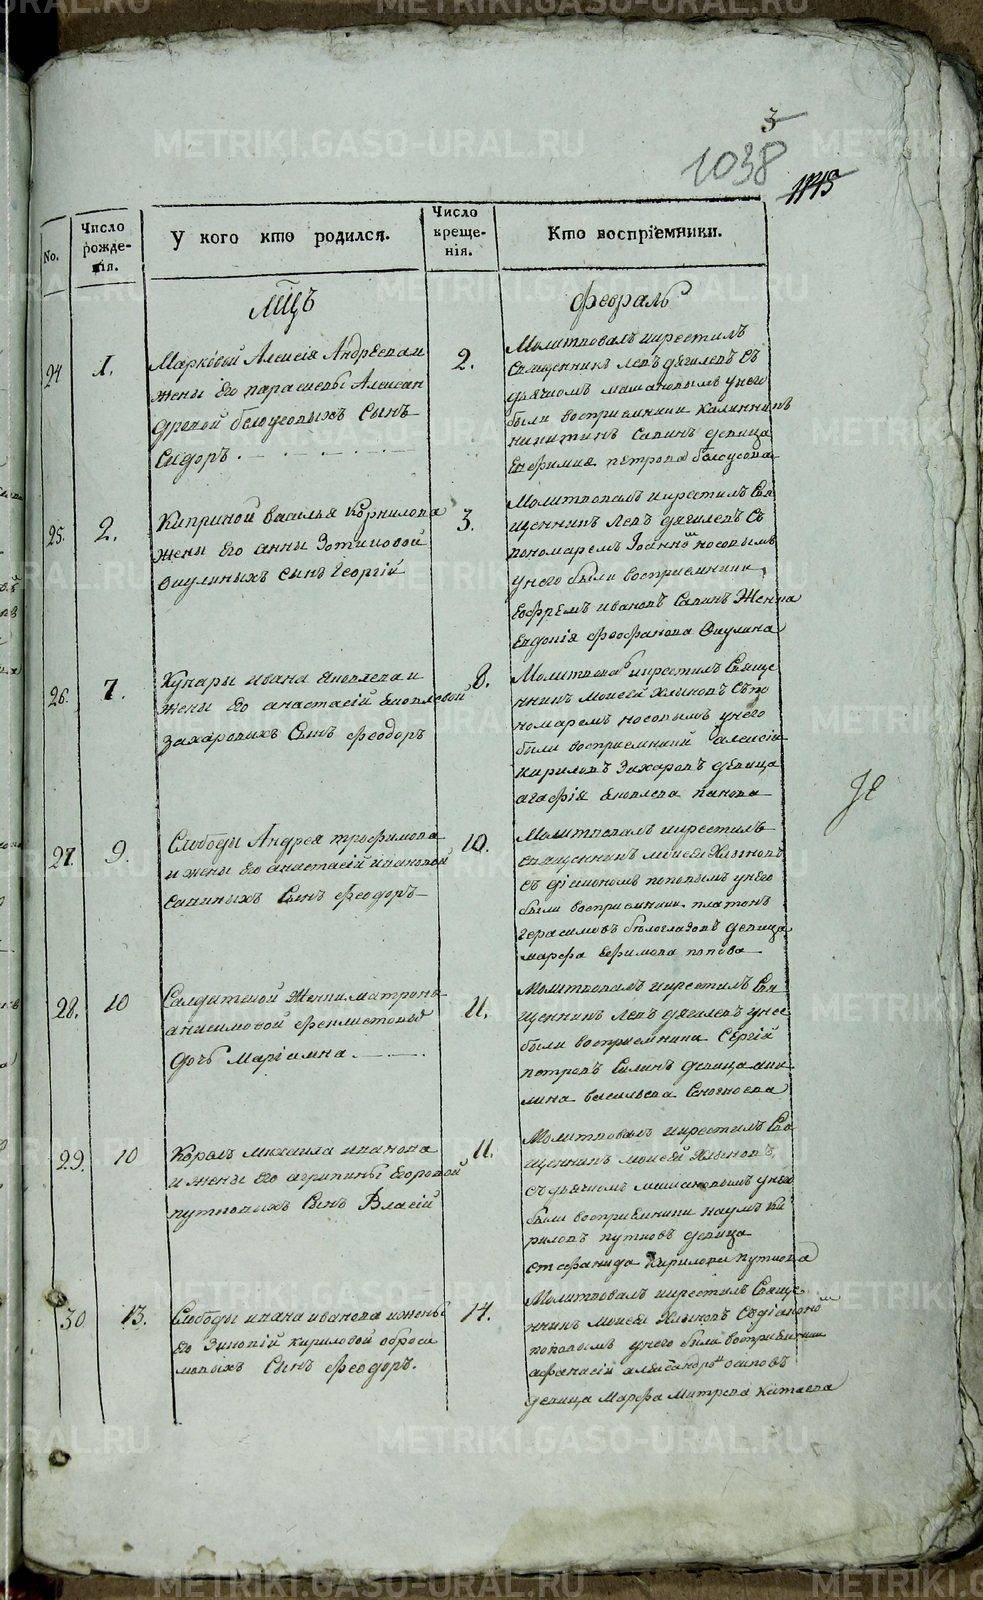 METRIKI.GASO-URAL.RU
3
1038
1145
No.
Число рожде-нія.
У кого кто родился.
Число креще-нія.
Кто воспріемники.
Мцъ
февраль
24
1.
Марковой Алексія Андреева и
жены Его параскевы Алексан
дровой белоусовыхъ Сынъ
Сидоръ.
2.
Молитвовалъ икрестилъ
Священникъ Левъ дягилевъ Съ
дьячкомъ машановымъ унего
были восприемники калинникъ
никитинъ Савинъ девица
Ефимия петрова белоусова
25.
2.
Киприной василья Корнилова
жены Его анны Зотиковой
Окулиныхъ сынъ Георгій
3.
Молитвовалъ икрестилъ Свя
щенникъ Левъ дягилевъ Съ
пономаремъ Іоанномъ носовымъ
унего были восприемники
Ефремъ ивановъ Савинъ Женка
Евдокія феофанова Окулина
26.
7.
Кунары ивана яковлева и
жены Его анастасій яковлевой
захаровихъ Сынъ феодоръ
8.
Молитвова икрестилъ Свяще
нникъ моисей Хлыновъ Съ по
номаремъ носовымъ унего
были восприемники алексій
кириловъ Захаровъ девица
агафія яковлева панова
27.
9.
Слободы Андрея трофимова
и жены Его анастасій ивановой
Савиныхъ Сынъ феодоръ
10.
Молитвовалъ икрестилъ
Священникъ моисей Хлыновъ
Съ діакономъ поповымъ унего
были восприемники платонъ
герасимовъ белоглазовъ девица
марфа Ефимова попова
28.
10
Салдатской Женки матроны
анисимовой феклистовы
дочь Маріамна.
11.
Молитвовалъ икрестилъ Свя
щенникъ Левъ дягилевъ унее
были восприемники Сергій
петровъ Силинъ девица аки
лина васильева Сеногноева
29.
10
Корелъ михаила иванова
и жены Его агрипины Егоровой
путковыхъ Сынъ Власій
11.
Молитвовалъ икрестилъ Свя
щенникъ моисей Хлыновъ
Съ дьячкомъ машановымъ унего
были восприемники наумъ ки
риловъ путковъ девица
стефанида Кирилова путкова
30
13.
Слободы ивана иванова и жены
Его Зиновій кириловой аброси
мовыхъ Сынъ феодоръ.
14.
Молитвовалъ икрестилъ Свяще
нникъ моисей Хлыновъ Съ діакономъ
поповымъ унего были восприемники
афанасій александровъ осиповъ
девица Марфа Митрева китаева